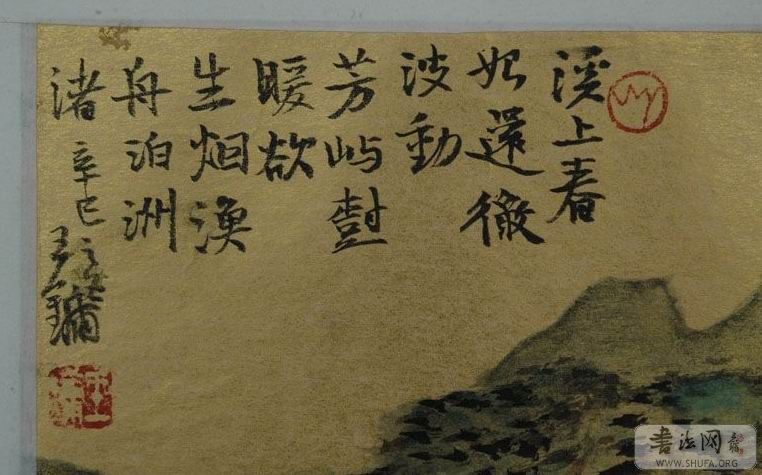 溪上春
始還微
波動
芳屿樹
暖欲
生烟漁
舟泊洲
渚 辛巳
書法网
WWW.SHUFA.ORG